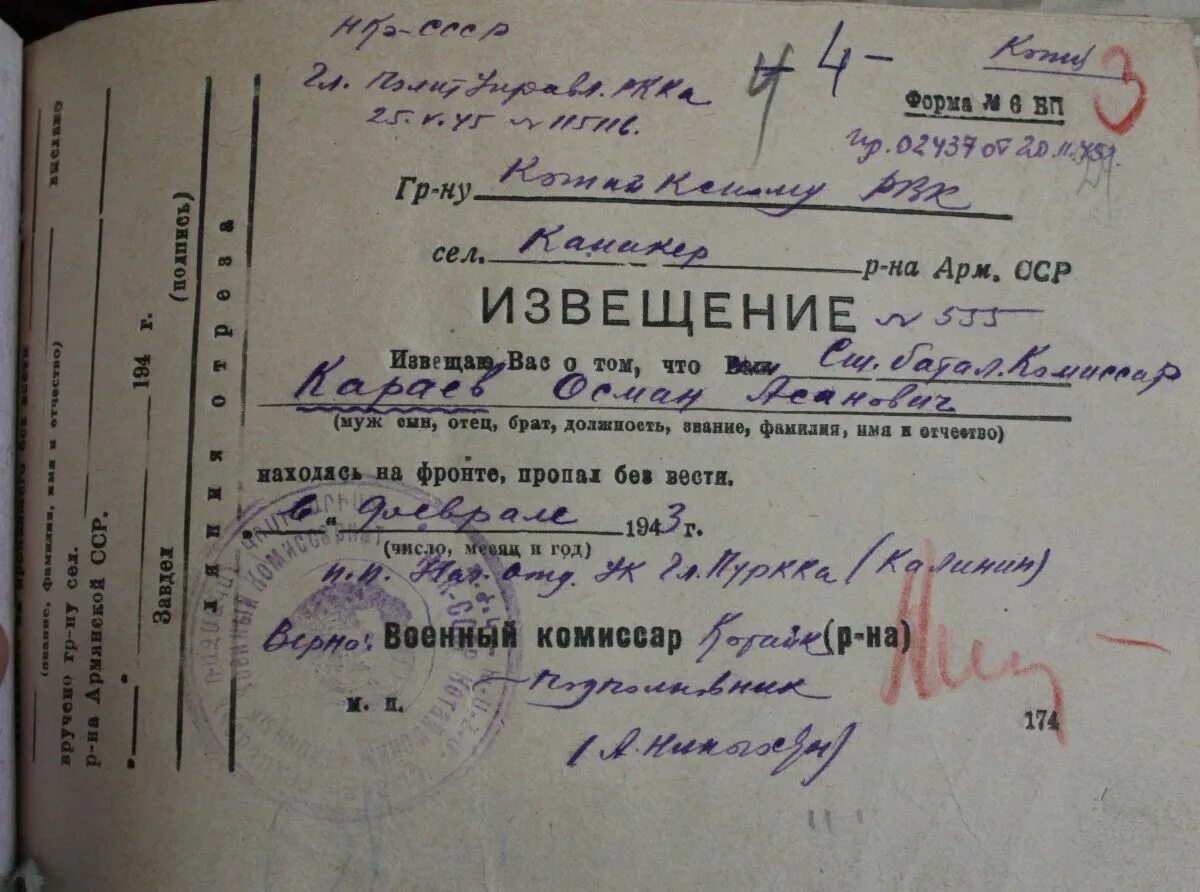 НКО-СССР
Гл. ПолитУправл. РККА
25.V.45 № 115116.
4
- 4 -
3
Форма № 6 БП
пр. 02437 от 20.II.45г.
Гр-ну Котайкскому РВК
сел. Канакер р-на Арм. ССР
ИЗВЕЩЕНИЕ № 535
Извещаю Вас о том, что Ст. батал. Комиссар
Караев Осман Асанович
(муж сын, отец, брат, должность, звание, фамилия, имя и отчество)
находясь на фронте, пропал без вести.
„ в “ феврале 1943 г.
(число, месяц и год)
п.п. Нач. отд. УК Гл.Пуркка (Калинин)
Верно: Военный комиссар Котайк (р-на)
подполковник
м. п.
174
линия отреза
выслано
(звание, фамилия, имя и отчество)
вручено гр-ну сел.
р-на Армянской ССР.
194 г.
Завдел
(подпись)